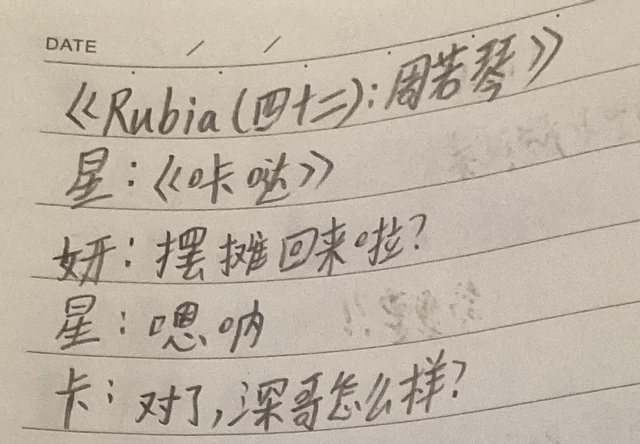 DATE / /
《Rubia(四十二):周若琴》
星:《咔哒》
妍:摆摊回来啦?
星:嗯呐
卡:对了,深哥怎么样?